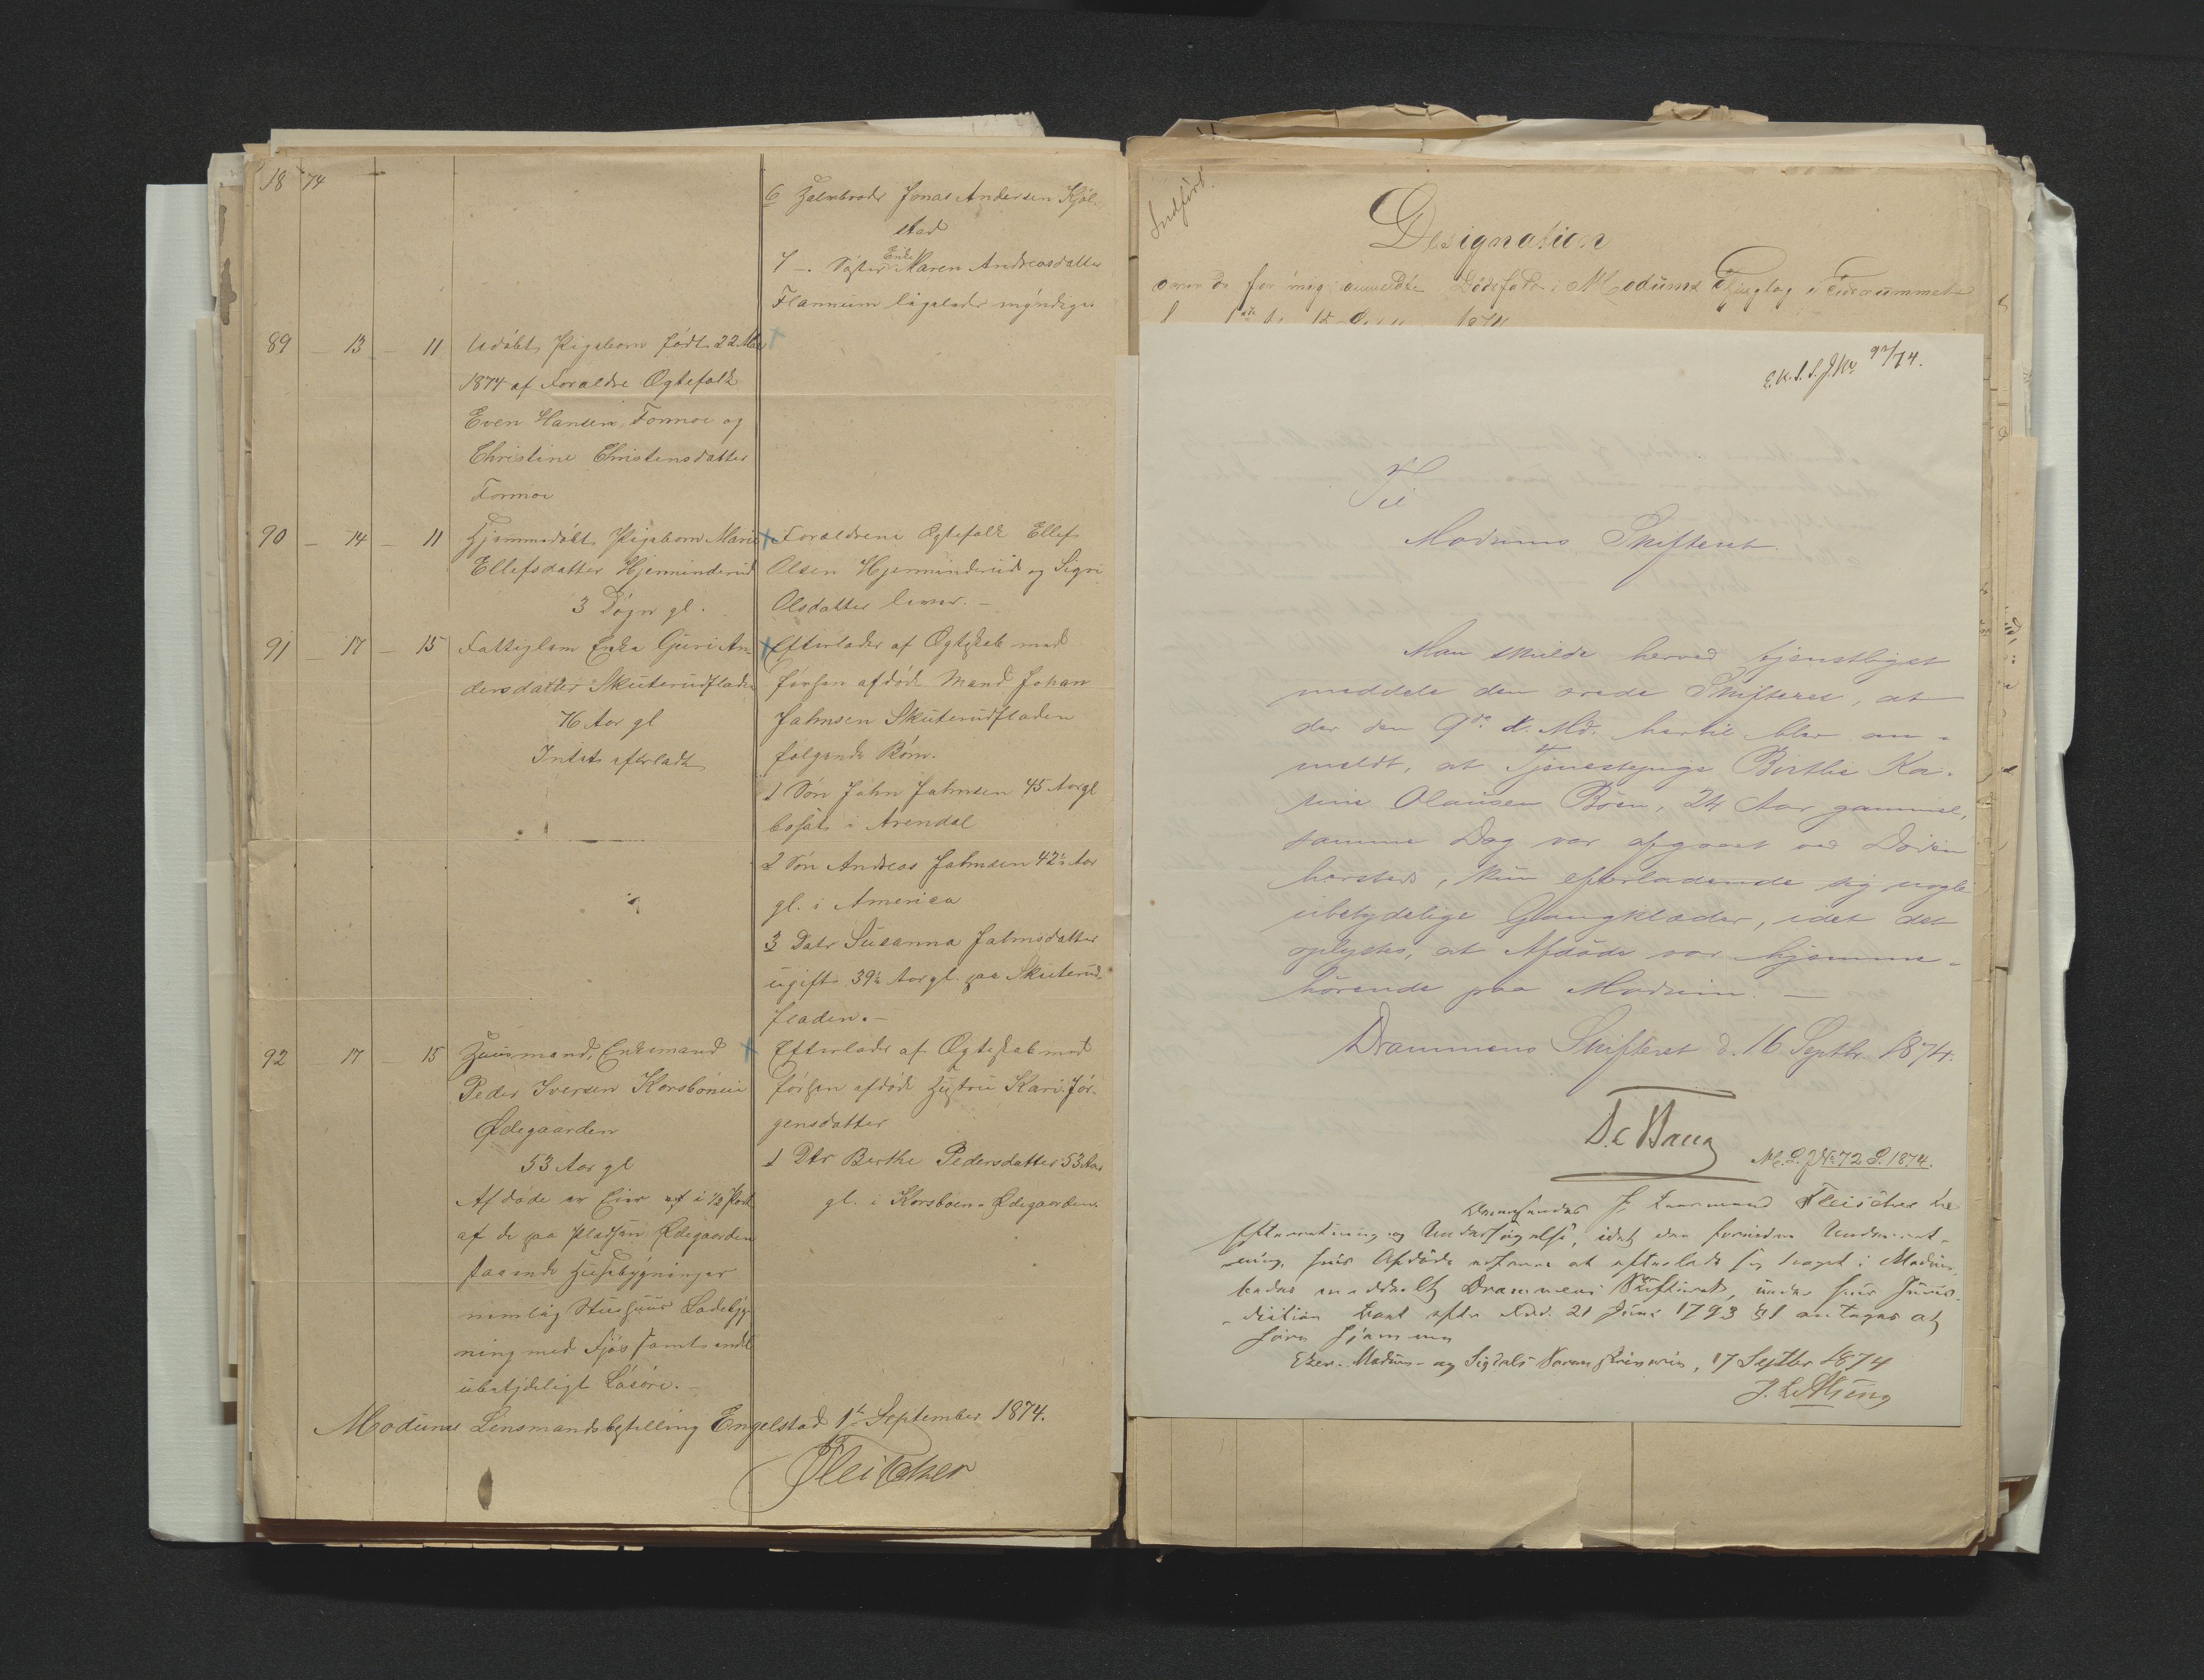 18 74
6 Halvbroder Jonas Andersen Kjöl-
stad
7 -. Søster Enke Maren Andreasdatter
Flannum ligeledes myndige
89 – 13 – 11 Udöbt Pigebarn födt 22 Mai
1874 af Forældre Ægtefolk
Even Hansen Formoe og
Christine Christensdatter
Formoe
90 – 14 – 11 Hjemmedöbt Pigebarn Marie
Ellefsdatter Hjemminderud
3 Døgn gl.
Forældrene Ægtefolk Ellef
Olsen Hjemminderud og Sigri
Olsdatter lever. –
91 – 17 – 15 Fattiglem Enke Guri An-
dersdatter Skuterudfladen
76 Aar gl
Intet efterladt
Efterlader af Ægteskab med
forhen afdöde Mand Johan
Jahnsen Skuterudfladen
følgende Børn.
1 Søn John Jahnsen 45 Aar gl
bosat i Arendal
2 Søn Andreas Jahnsen 42½ Aar
gl. i America
3 Datr Susanna Jahnsdatter
ugift 39½ Aar gl. paa Skuterud-
fladen. –
92 – 17 – 15 Huusmand, Enkemand
Peder Iversen Korsboen
Ødegaarden
53 Aar gl
Afdøde er Eier af i ½ Part
af de paa Pladsen Ødegaarden
staaende Husebygninger
nemlig Stuehuus Ladebyg-
ning med Fjös samt endel
ubetydeligt Løsöre. –
Efterlader af Ægteskab med
forhen afdöde Hustru Kari Jör-
gensdatter
1 Dtr Berthe Pedersdatter 53 Aar
gl. i Korsboen Ødegaarden
Modums Lensmandsbestilling Engelstad 1t September 1874.
Fleischer
Indført
Designation
over de for mig anmeldte Dødsfald i Modums Thinglag i Tidsrummet
E.K.S.S.J.No 92/74.
Til
Modums Skifteret.
Man skulde herved tjenstligst
meddele den ærede Skifteret, at
der den 9de d. Md. hertil blev an-
meldt, at Tjenestepige Berthe Ka-
rine Olausen Böen, 24 Aar gammel,
samme Dag var afgaaet ved Døden
hersteds, kun efterladende sig nogle
ubetydelige Gangklæder, idet det
oplystes, at Afdøde var hjemme-
hörende paa Modum. –
Drammens Skifteret d. 16 Septbr. 1874.
M.L.J.No 72 S. 1874.
Fremsendes Hr Lensmand Fleischer til
Efterretning og Undersøgelse, idet den fornødne Underret-
ning, hvis Afdøde maatte at efterlade sig noget i Modum,
bedes meddelt Drammens Skifteret, under hvis Juris-
diction Boet efter Frd. 21 Juni 1793 § 1 antages at
høre hjemme
Eker- Modum- og Sigdals Sorenskriveri, 17 Septbr 1874